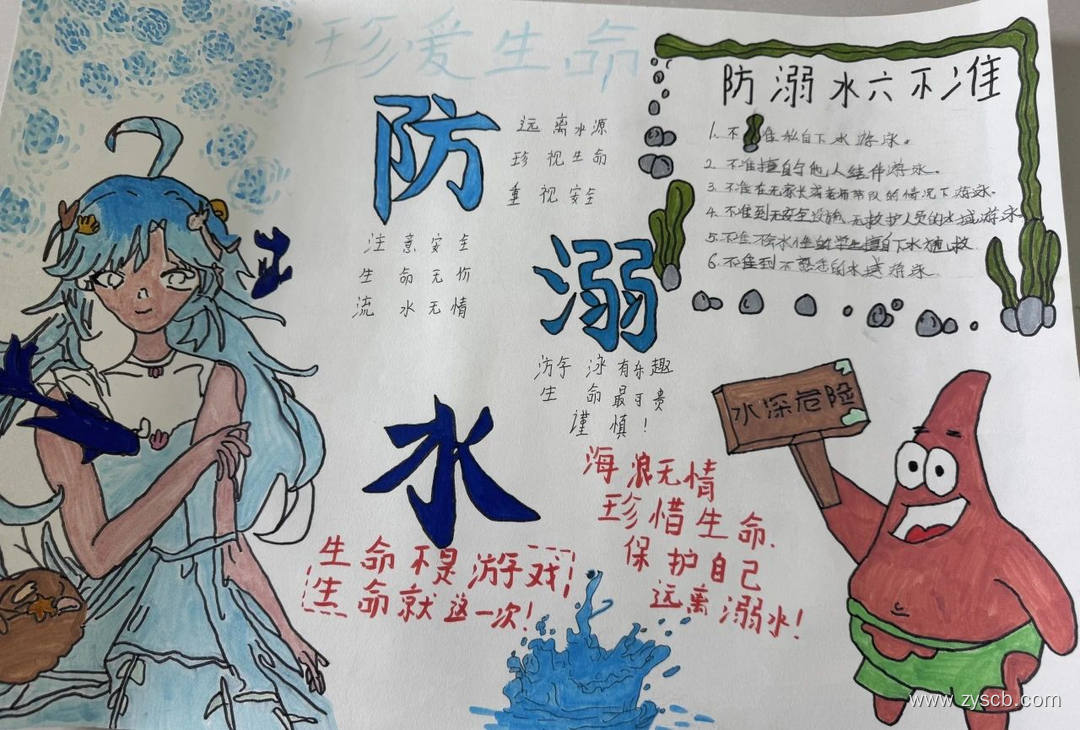 珍爱生命
防
溺
水
远离水源
珍视生命
重视安全
注意安全
生命无价
流水无情
游泳有乐趣
生命最可贵
谨慎!
海浪无情
珍惜生命.
保护自己
远离溺水!
生命不是游戏
生命就这一次!
防溺水六不准
1. 不准私自下水游泳。
2. 不准擅自与他人结伴游泳。
3. 不准在无家长或老师带队的情况下游泳。
4. 不准到无安全设施,无救护人员的水域游泳
5. 不准不会水性的学生擅自下水施救
6. 不准到不熟悉的水域游泳
水深危险
www.zyscb.com